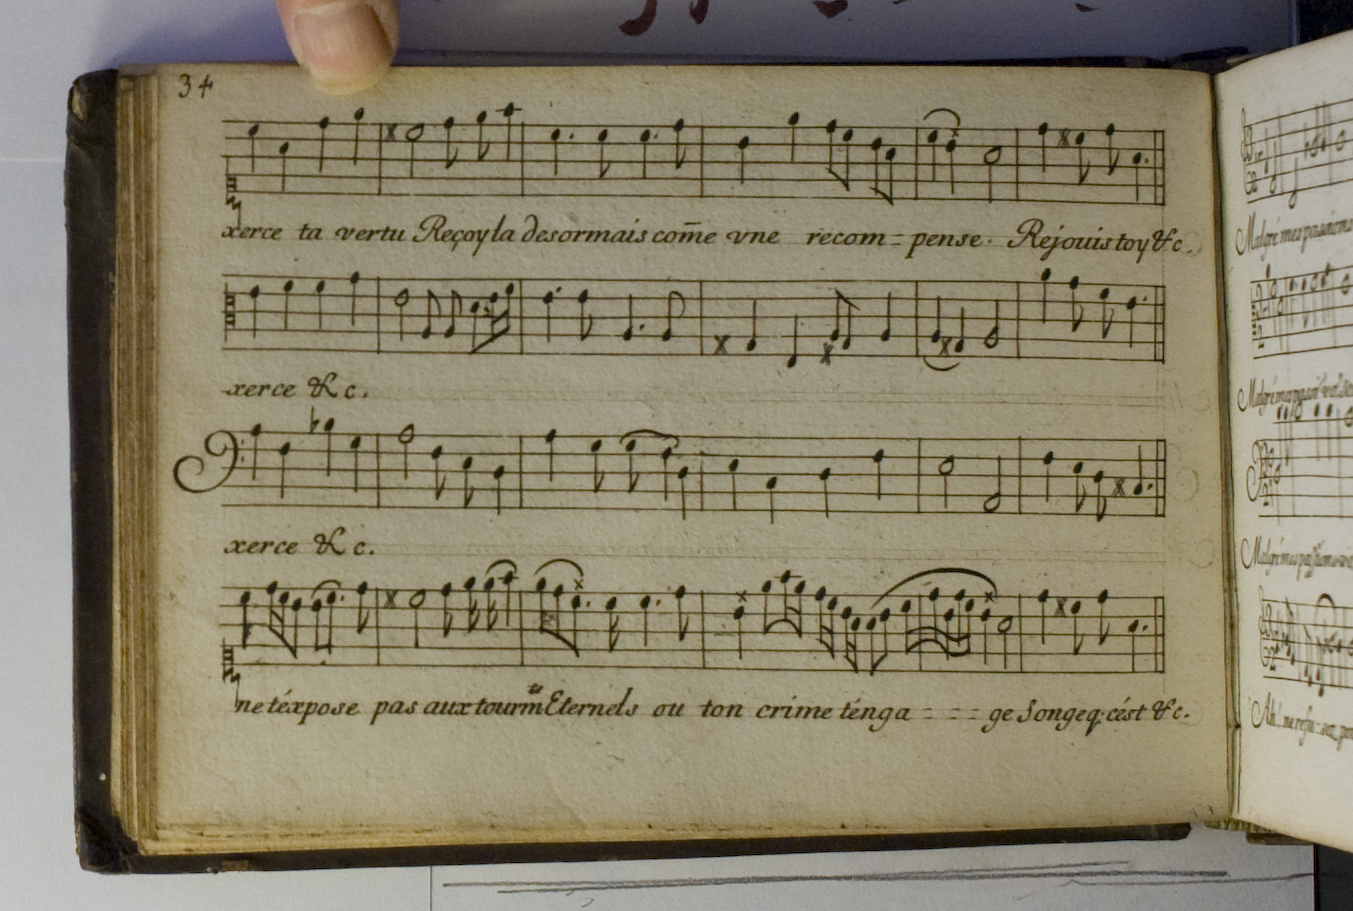 34
xerce ta vertu Reçoy la desormais com̄e vne recom= pense. Rejouis toy &c.
xerce &c.
xerce &c.
ne téxpose pas aux tourmts Eternels ou ton crime ténga - - - ge Songe q; cést &c.
Malgré mes
Malgré mes
Malgré mes
Ah! ne refu